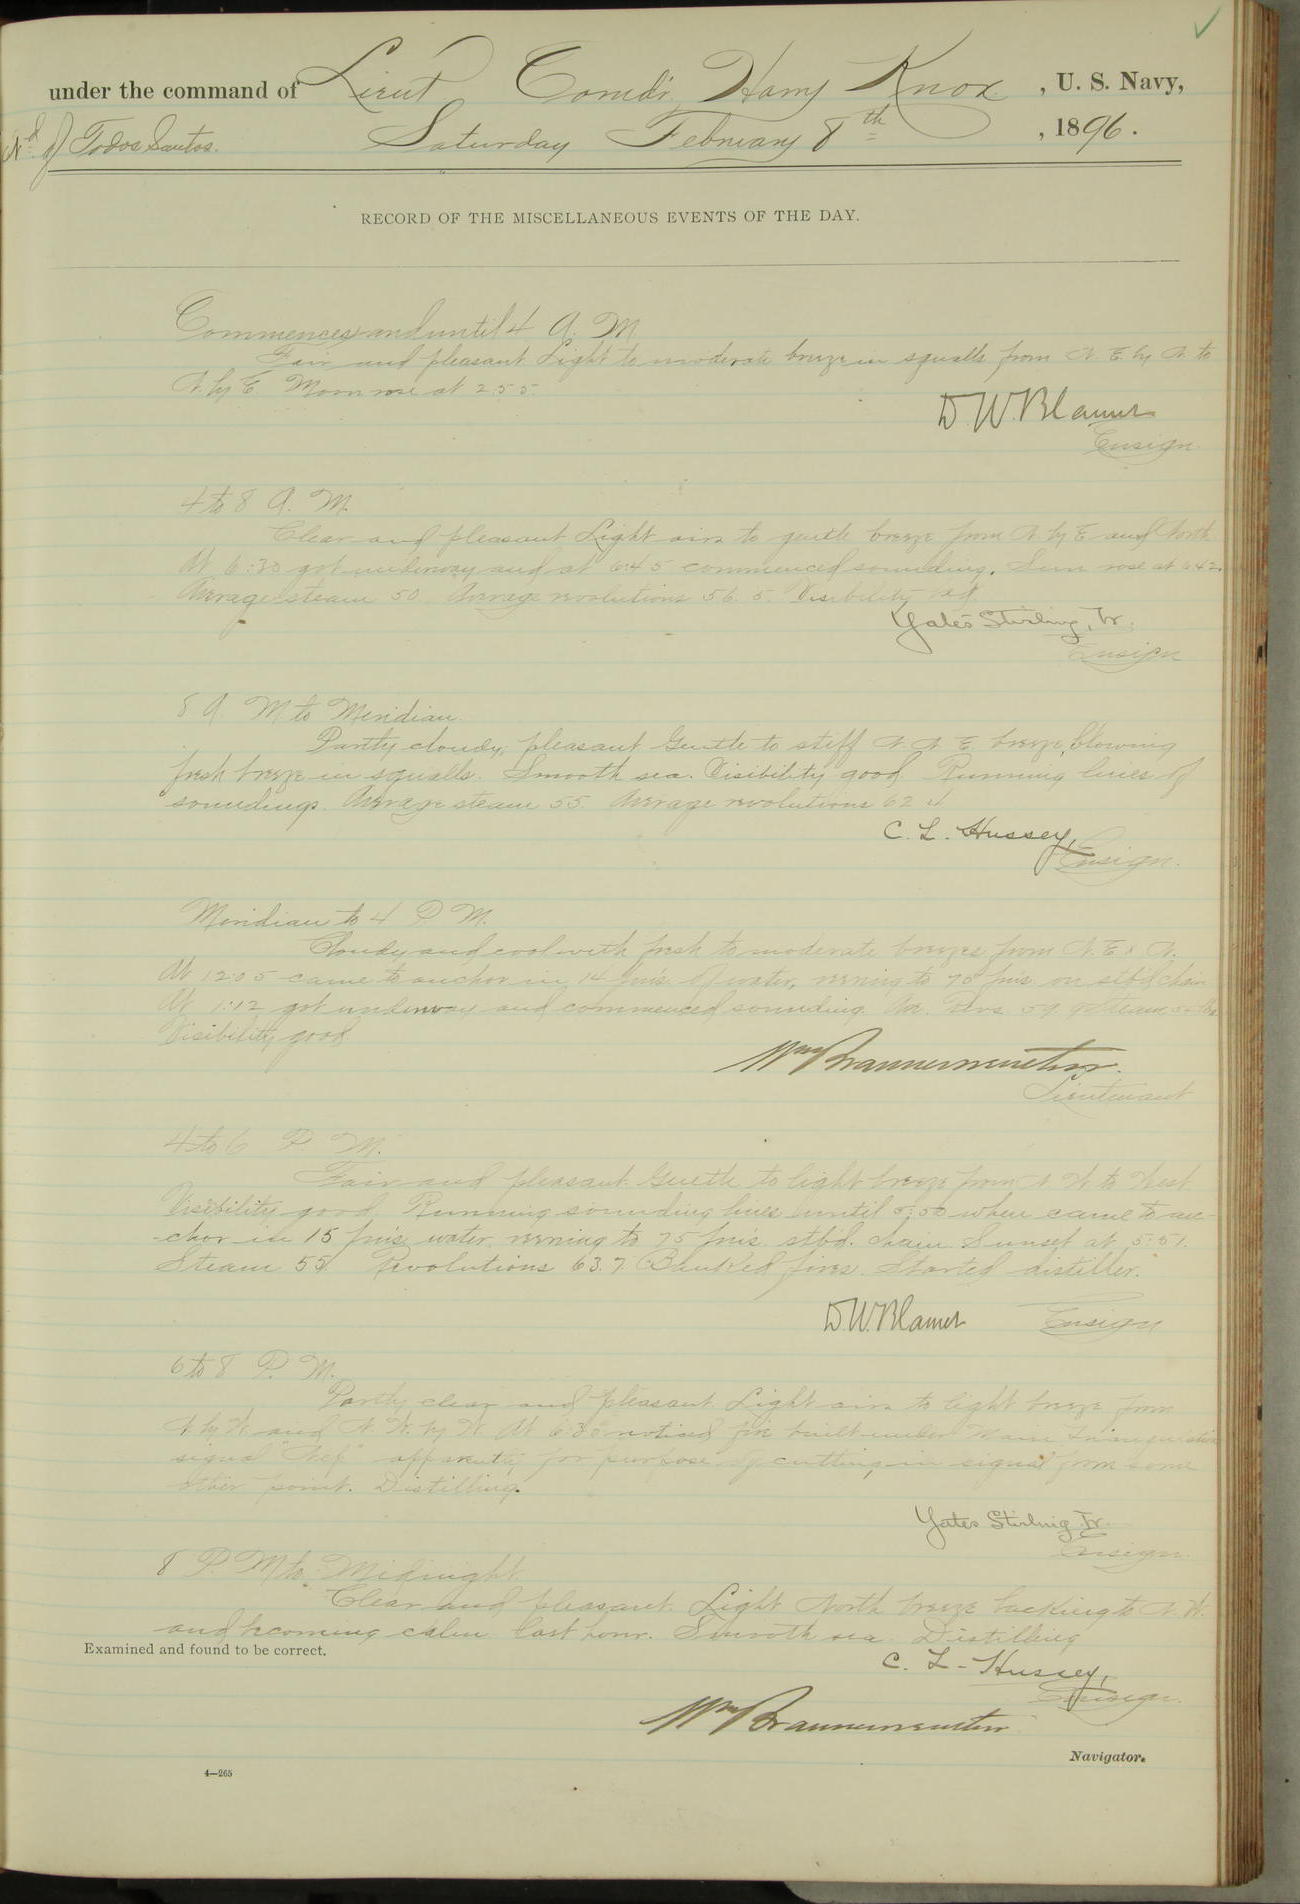 under the command of Lieut Comdr. Harry Knox, U. S. Navy,
Nd of Todos Santos. Saturday February 8th, 1896.
RECORD OF THE MISCELLANEOUS EVENTS OF THE DAY.
Commences and until 4 A. M.
Fair and pleasant. Light to moderate breeze in squalls from N. E. by N. to
N. by E. Moon rose at 2:55.
D. W. Blamer
Ensign
4 to 8 A. M.
Clear and pleasant Light airs to gentle breeze from N by E and North
At 6:30 got underway and at 6:45 commenced sounding. Sun rose at 6:42.
Average steam 50. Average revolutions 56.5. Visibility
Yates Stirling, Jr.
Ensign
8 A M to Meridian.
Partly cloudy, pleasant Gentle to stiff N. N. E. breeze, blowing
fresh breeze in squalls. Smooth sea. Visibility good. Running lines of
soundings. Average steam 55. Average revolutions 62.4
C. L. Hussey,
Ensign.
Meridian to 4 P. M.
Cloudy and cool with fresh to moderate breezes from N. E. & N.
At 12:05 came to anchor in 14 fms. of water, veering to 75 fms on stbd chain
At 1:12 got underway and commenced sounding. Av. Revs. 59.9 Steam
Visibility good
Wm Braunersreuther.
Lieutenant
4 to 6 P. M.
Fair and pleasant. Gentle to light breeze from N W to West
Visibility good. Running sounding lines until 5:50 when came to an-
-chor in 15 fms. water veering to 75 fms. stbd. chain. Sunset at 5:51.
Steam 55. Revolutions 63.7. Banked fires. Started distiller.
D. W. Blamer Ensign
6 to 8 P. M.
Partly clear and pleasant. Light airs to light breeze from
N by W and N. W. by W. At 6:30 noticed fire built under Main Triangulation
signal apparently for purpose of cutting in signal from some
other point. Distilling.
Yates Stirling Jr.
Ensign.
8 P. M to Midnight
Clear and pleasant. Light North breeze backing to N. W.
and becoming calm last hour. Smooth sea. Distilling
Examined and found to be correct.
C. L. Hussey,
Ensign.
Wm Braunersreuther
Navigator.
4—265